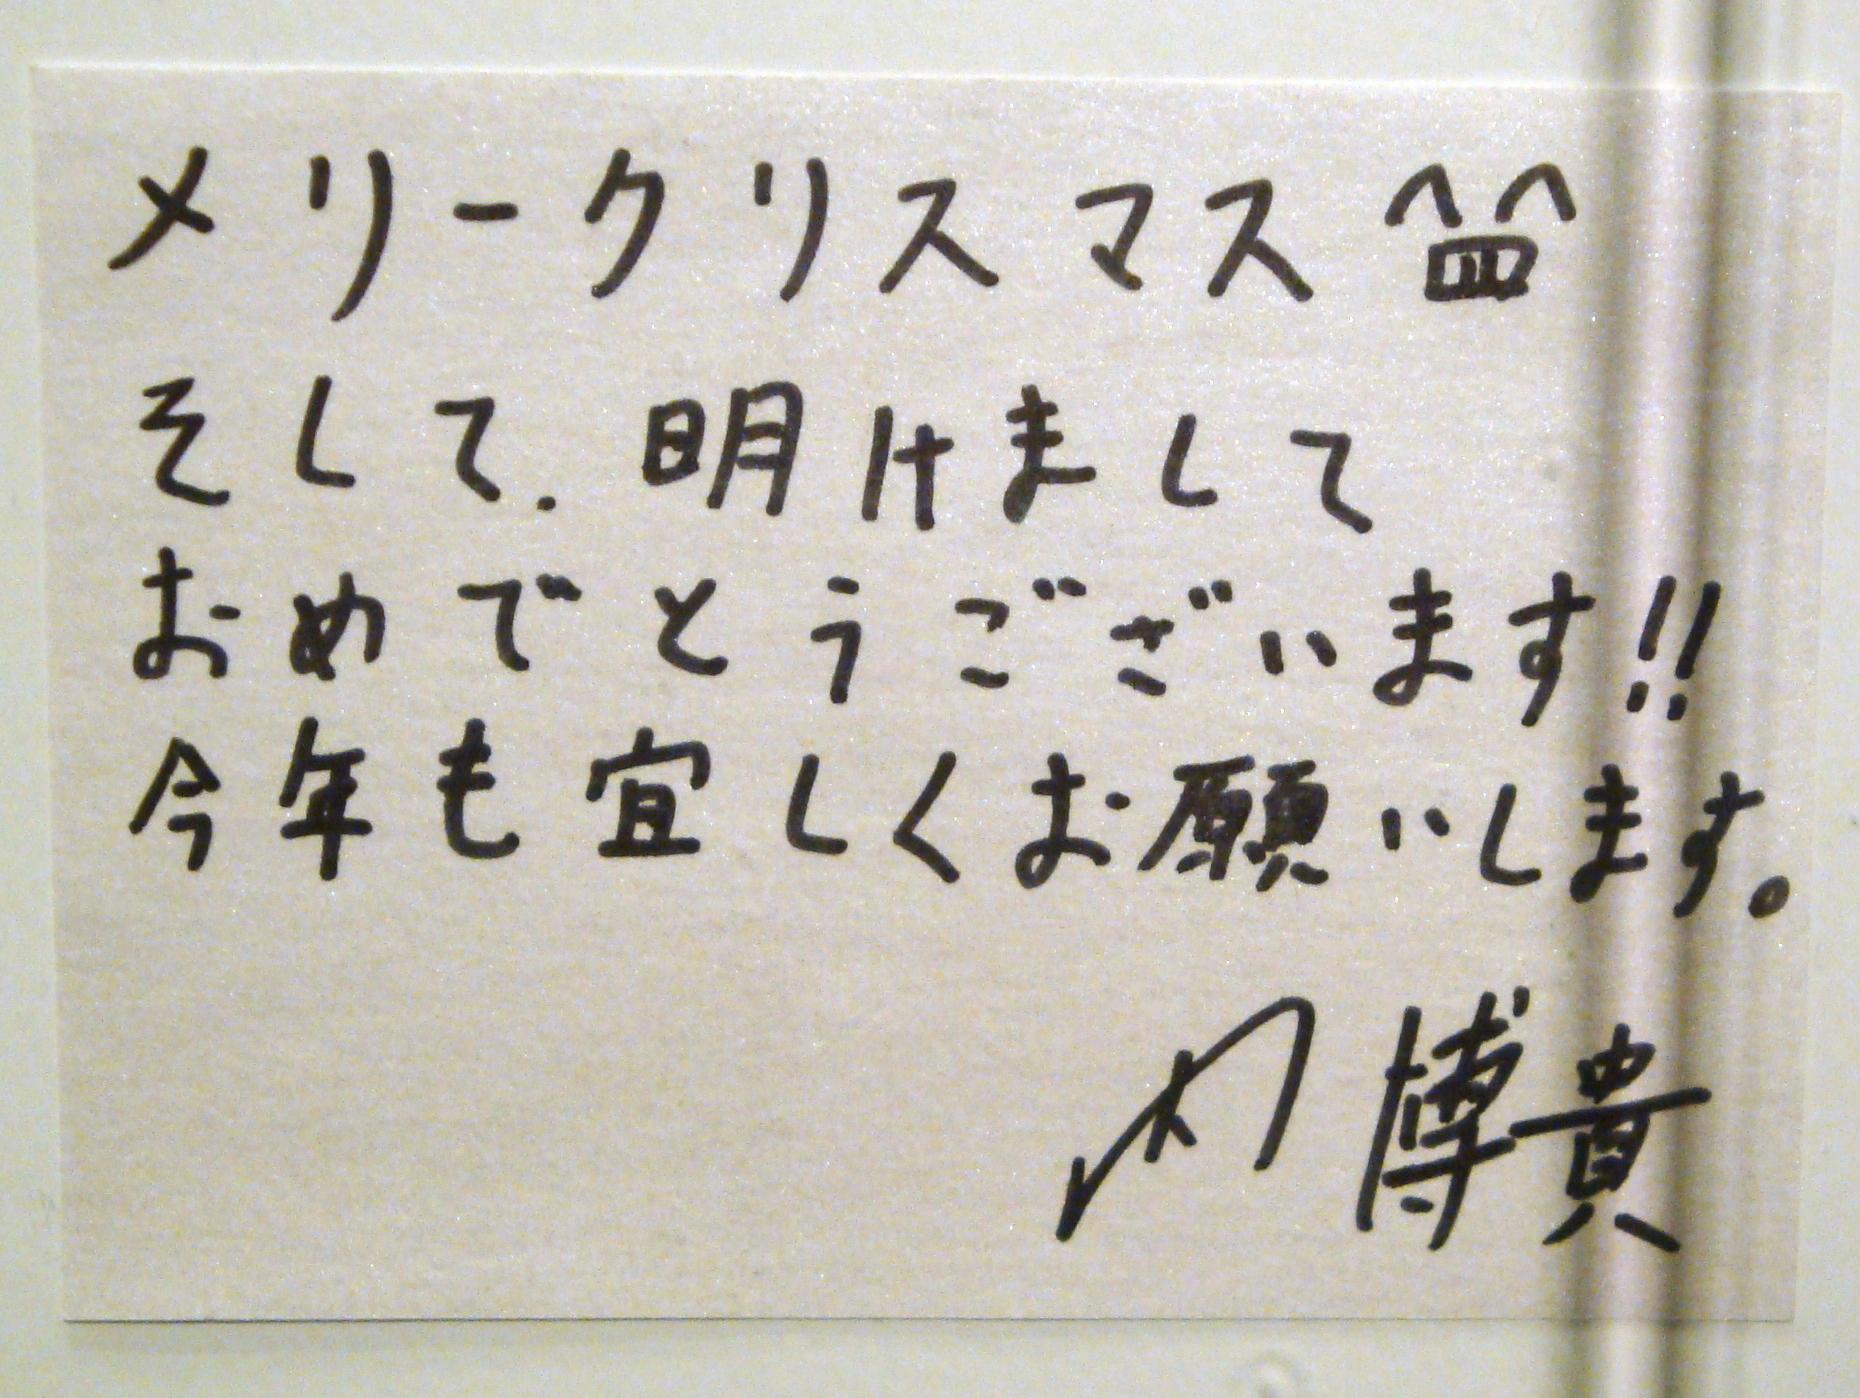 メリークリスマス
そして、明けまして
おめでとうございます!!
今年も宜しくお願いします。
内 博貴